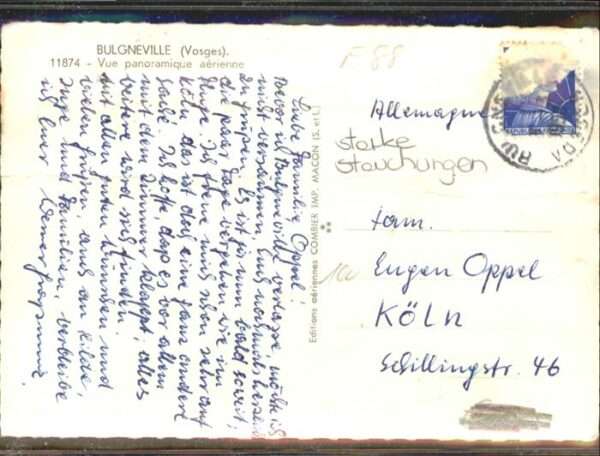 BULGNEVILLE (Vosges).
11874 - Vue panoramique aérienne
Liebe Familie Oppel!
Bevor ich Bulgneville verlasse, möchte ich
nicht versäumen, Euch nochmals herzl.
zu grüßen. Es ist ja nun bald soweit,
die paar Tage vergehen wie im
Fluge. Ich freue mich schon sehr auf
Köln, das ist doch eine ganz andere
Sache. Ich hoffe, daß es vor allem
mit dem Zimmer klappt, alles
weitere wird sich finden.
Mit allen guten Wünschen und
vielen Grüßen, auch an Hilde,
und Familien, verbleibe
ich Euer
Editions aériennes COMBIER IMP. MACON (S. et L.)
F 88
Allemagne
starke
Stauchungen
Fam.
Eugen Oppel
KÖLN
Schillingstr. 46